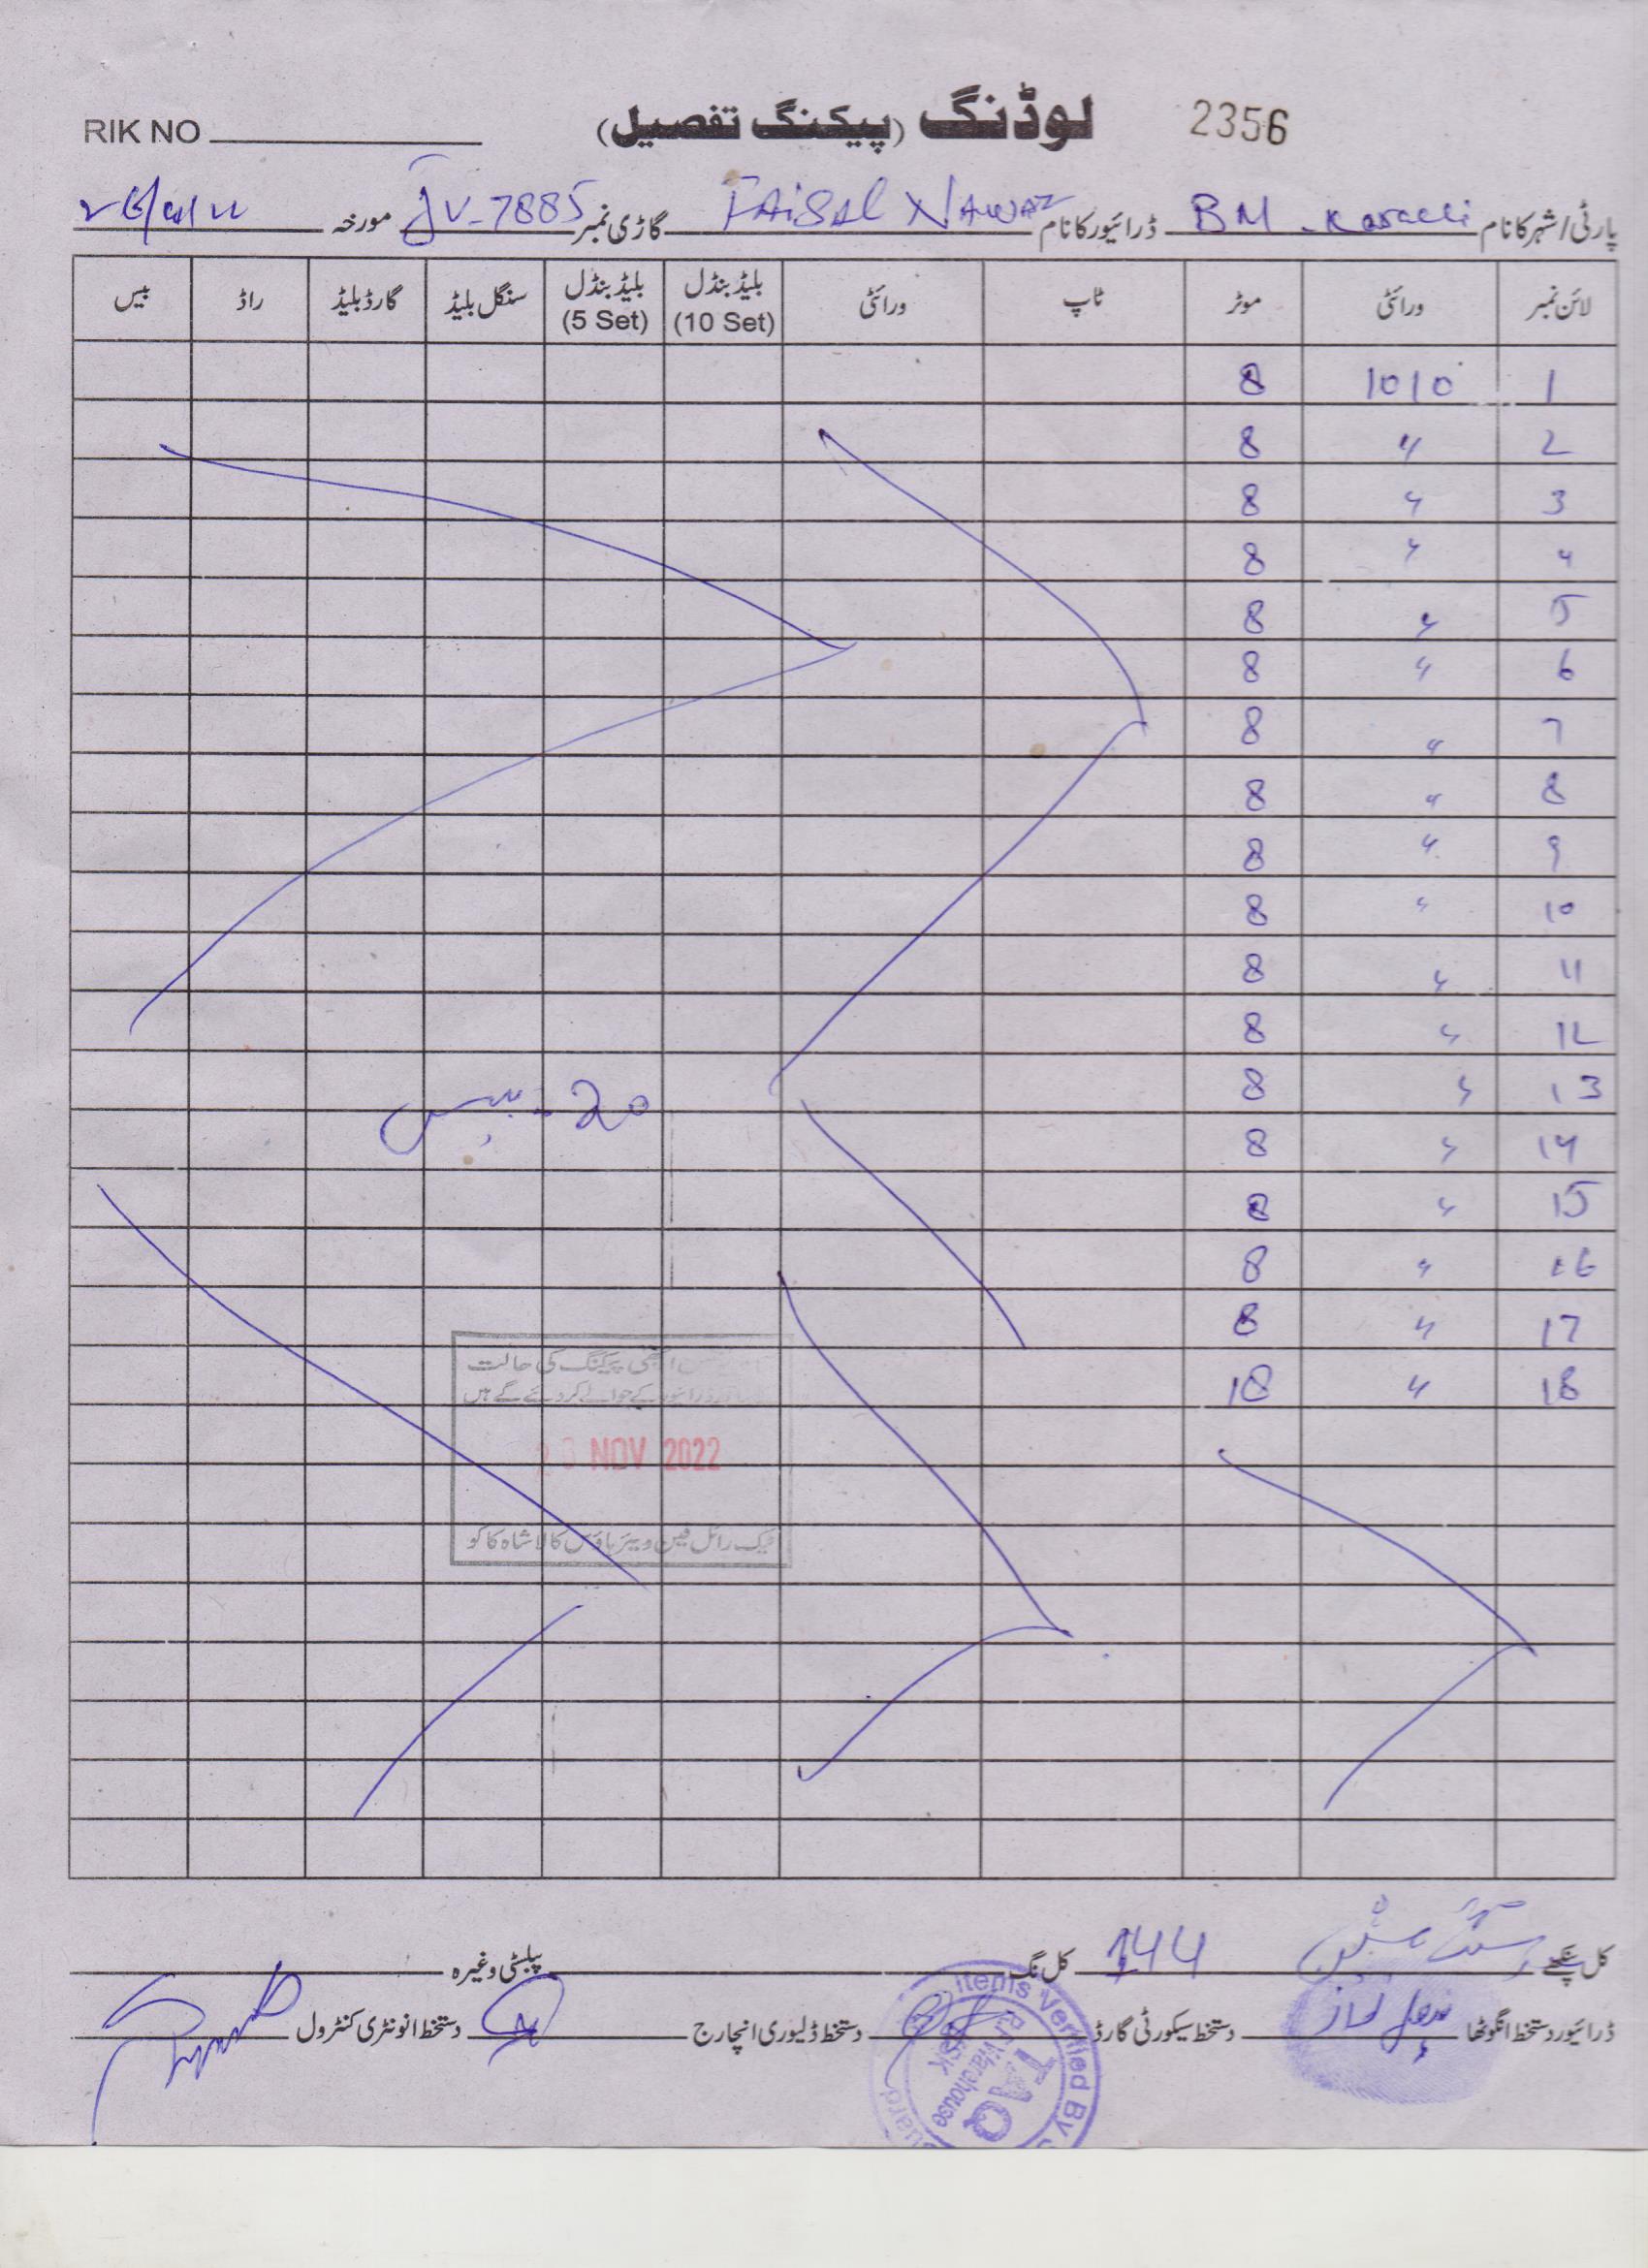 RIK NO لوڈنگ (پیکنگ تفصیل) 2356
پارٹی/شہر کا نام BM - Karachi ڈرائیور کا نام FAiSAL NAWAZ گاڑی نمبر JV-7885 مورخہ
لائن نمبر ورائٹی موٹر ٹاپ ورائٹی بلیڈ بنڈل (10 Set) بلیڈ بنڈل (5 Set) سنگل بلیڈ گارڈ بلیڈ راڈ بیس
1 1010 8
2 〃 8
3 〃 8
4 〃 8
5 〃 8
6 〃 8
7 〃 8
8 〃 8
9 〃 8
10 〃 8
11 〃 8
12 〃 8
13 〃 8
14 〃 8
15 〃 8
16 〃 8
17 〃 8
18 〃
پیکنگ کی حالت
کے حوالے کر دئے گے ہیں
NOV 2022
رائل فین ویئر ہاؤس کالا شاہ کاکو
کل پنکھے کل نگ 144 پبلسٹی وغیرہ
ڈرائیور دستخط انگوٹھا فیصل نواز دستخط سیکورٹی گارڈ دستخط ڈلیوری انچارج دستخط انونٹری کنٹرول
items Verified By
Warehouse
KSK
TAQ